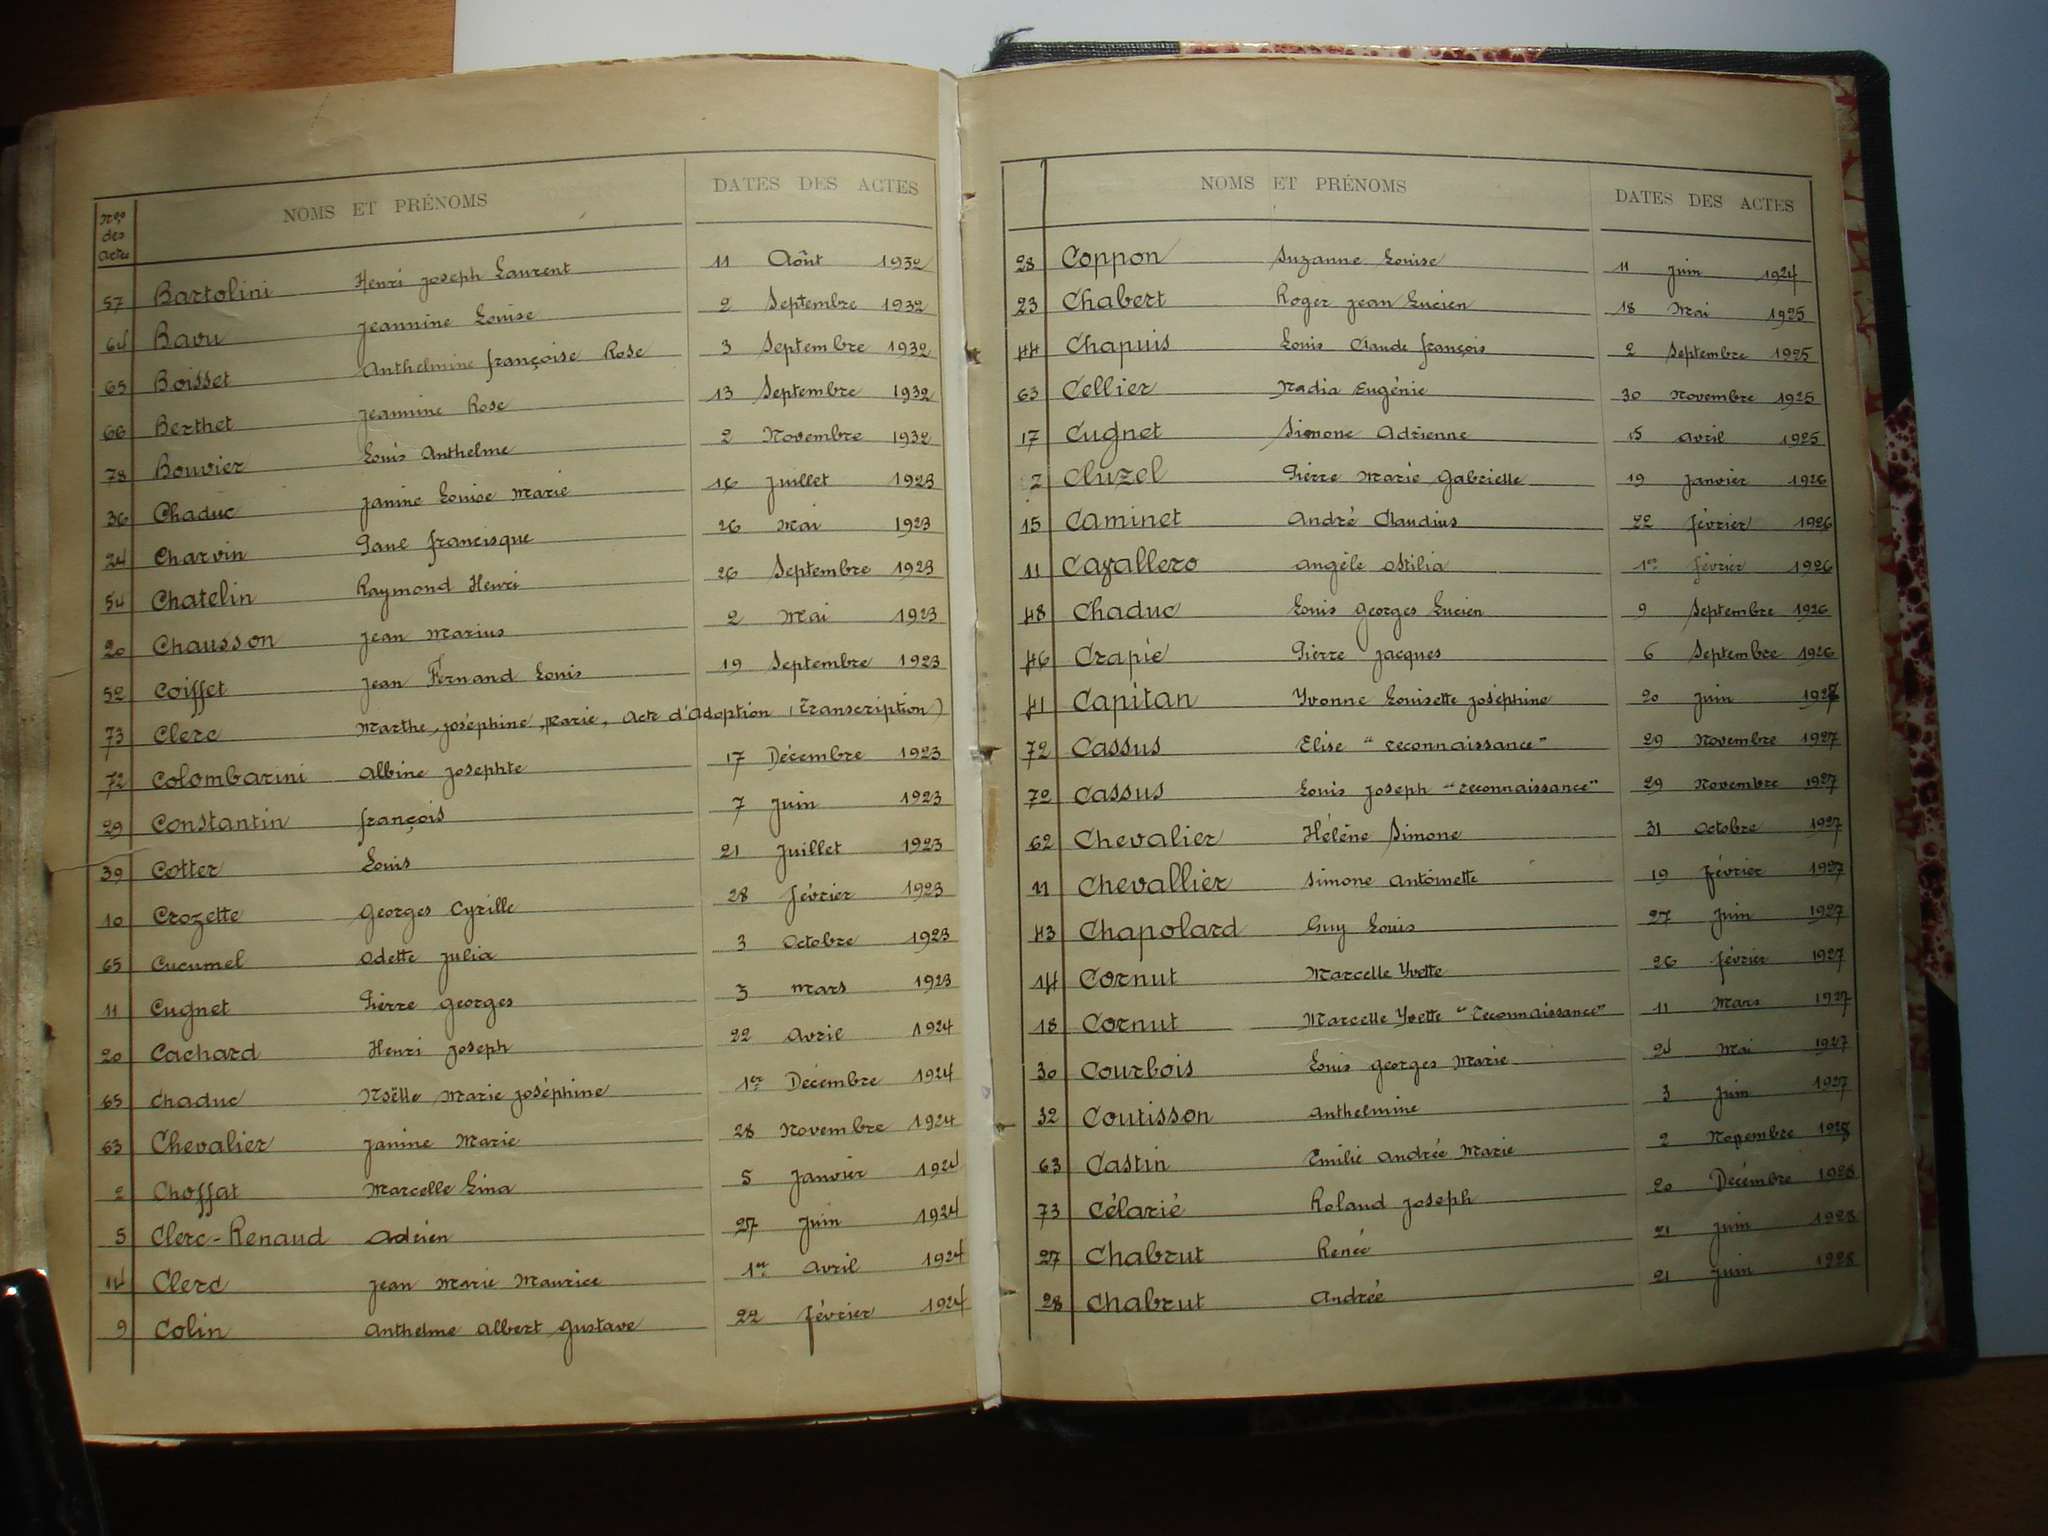 Nos des actes NOMS ET PRÉNOMS DATES DES ACTES
57 Bartolini Henri Joseph Laurent 11 Août 1932
64 Bavu Jeannine Louise 2 Septembre 1932
65 Boisset Anthelmine Françoise Rose 3 Septembre 1932
66 Berthet Jeannine Rose 13 Septembre 1932
78 Bouvier Louis Anthelme 2 Novembre 1932
36 Chaduc Janine Louise Marie 16 Juillet 1923
24 Charvin Paul Francisque 26 Mai 1923
54 Chatelin Raymond Henri 26 Septembre 1923
20 Chausson Jean Marius 2 Mai 1923
52 Coiffet Jean Fernand Louis 19 Septembre 1923
73 Clerc Marthe, Joséphine, Marie, Acte d'Adoption (Transcription)
72 Colombarini Albine Josephte 17 Décembre 1923
29 Constantin François 7 Juin 1923
39 Cotter Louis 21 Juillet 1923
10 Crozette Georges Cyrille 28 Février 1923
65 Cucumel Odette Julia 3 Octobre 1923
11 Cugnet Pierre Georges 3 Mars 1923
20 Cachard Henri Joseph 22 Avril 1924
65 Chaduc Noëlle Marie Joséphine 1er Décembre 1924
63 Chevalier Janine Marie 28 Novembre 1924
2 Choffat Marcelle Lina 5 Janvier 1924
5 Clerc-Renaud Adrien 27 Juin 1924
14 Clerc Jean Marie Maurice 1er Avril 1924
9 Colin Anthelme Albert Gustave 22 Février 1924
NOMS ET PRÉNOMS DATES DES ACTES
28 Coppon Suzanne Louise 11 Juin 1924
23 Chabert Roger Jean Lucien 18 Mai 1925
44 Chapuis Louis Claude François 2 Septembre 1925
63 Cellier Nadia Eugénie 30 Novembre 1925
17 Cugnet Simone Adrienne 15 Avril 1925
2 Cluzel Pierre Marie Gabrielle 19 Janvier 1926
15 Caminet André Claudius 22 Février 1926
11 Cavallero Angèle Ostilia 1er Février 1926
48 Chaduc Louis Georges Lucien 9 Septembre 1926
46 Crapié Pierre Jacques 6 Septembre 1926
41 Capitan Yvonne Louisette Joséphine 20 Juin 1927
72 Cassus Elise "reconnaissance" 29 Novembre 1927
72 Cassus Louis Joseph "reconnaissance" 29 Novembre 1927
62 Chevalier Hélène Simone 31 Octobre 1927
11 Chevallier Simone Antoinette 19 Février 1927
43 Chapolard Guy Louis 27 Juin 1927
14 Cornut Marcelle Yvette 26 Février 1927
18 Cornut Marcelle Yvette "reconnaissance" 11 Mars 1927
30 Courbois Louis Georges Marie 24 Mai 1927
32 Coutisson Anthelmine 3 Juin 1927
63 Castin Emilie Andrée Marie 2 Novembre 1928
73 Célarié Roland Joseph 20 Décembre 1928
27 Chabrut Renée 21 Juin 1928
28 Chabrut Andrée 21 Juin 1928